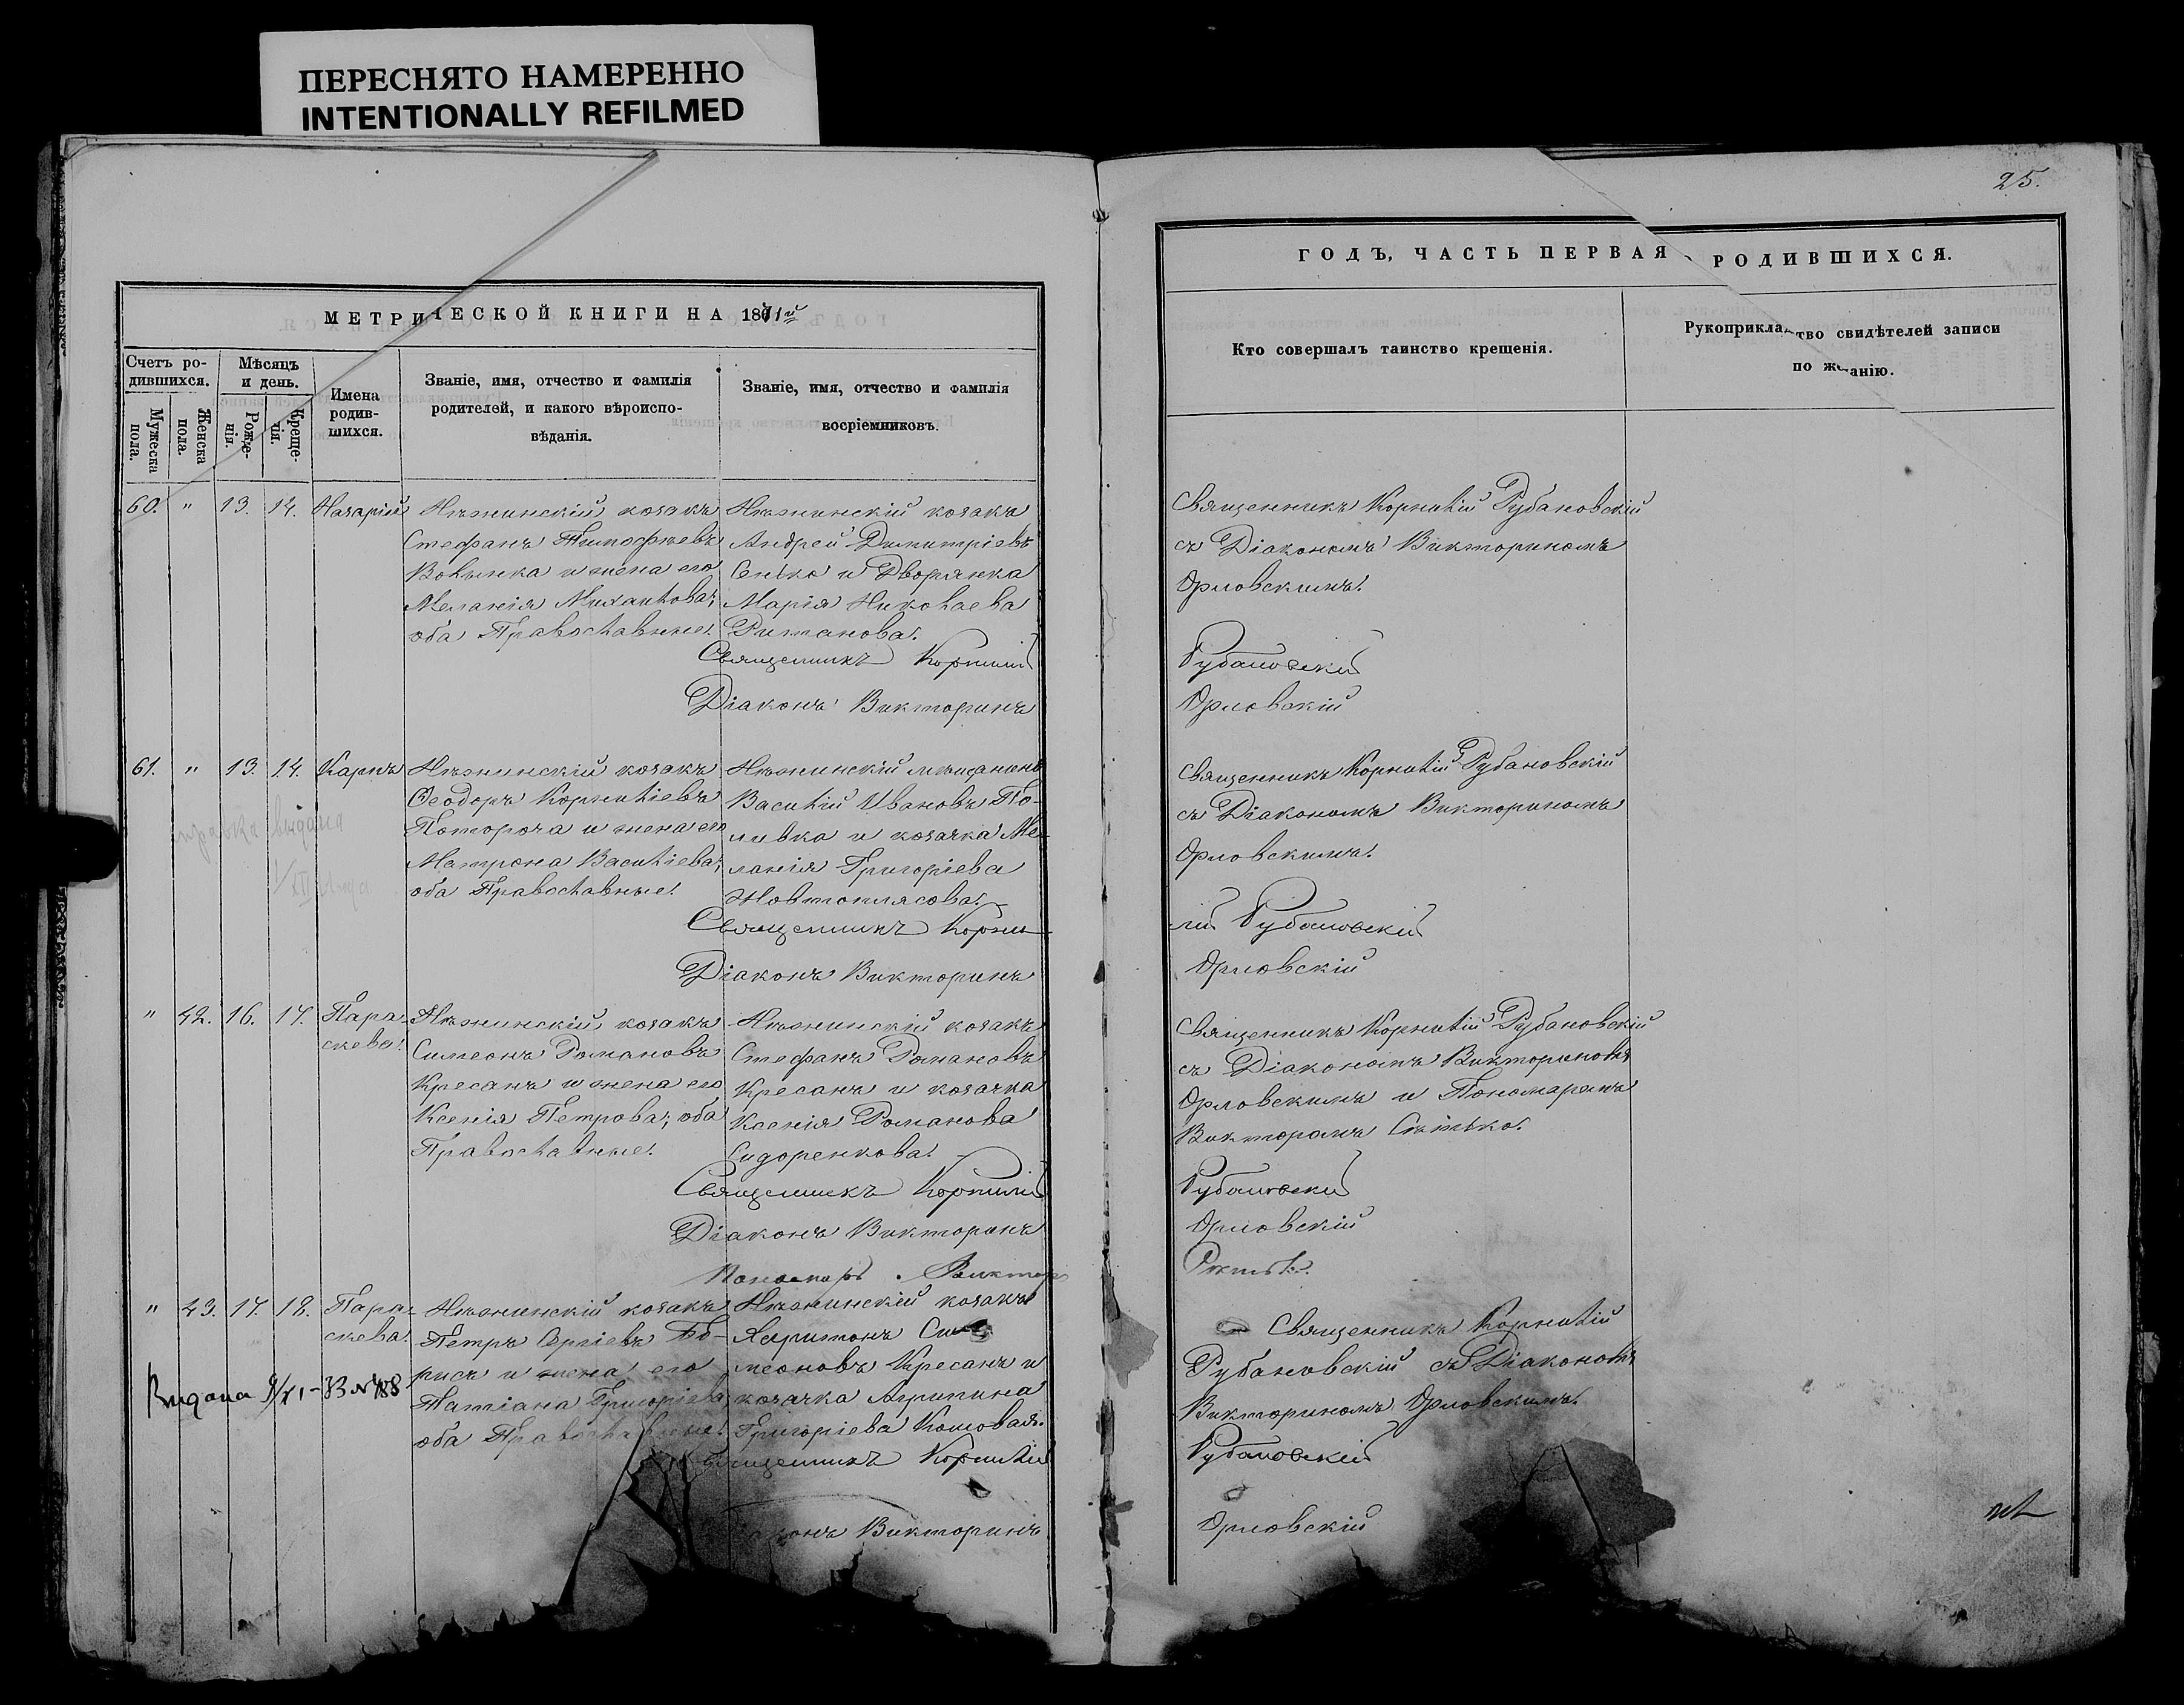 ПЕРЕСНЯТО НАМЕРЕННО
INTENTIONALLY REFILMED
МЕТРИЧЕСКОЙ КНИГИ НА 1871й
Счетъ ро-
дившихся.
Мужеска
пола.
Женска
пола.
Мѣсяцъ
и день.
Рожде-
нія.
Креще-
нія.
Имена
родив-
шихся.
Званіе, имя, отчество и фамилія
родителей, и какого вѣроиспо-
вѣданія.
Званіе, имя, отчество и фамилія
воспріемниковъ.
60. " 13. 14. Назарій
Нѣжинскій козакъ
Стефанъ Тимофѣевъ
Волынка и жена его
Меланія Михаилова;
оба Православные.
Нѣжинскій козакъ
Андрей Димитріевъ
Сенько и Дворянка
Марія Николаева
Романова.
Священникъ Корнилій
Діаконъ Викторинъ
61. " 13. 14. Карпъ
Нѣжинскій козакъ
Ѳеодоръ Корниліевъ
Потороча и жена его
Матрона Василіева;
оба Православные.
Нѣжинскій мѣщанинъ
Василій Ивановъ По-
ливка и козачка Ме-
ланія Григоріева
Жовтоплясова.
Священникъ Корни-
Діаконъ Викторинъ
справка выдана
" 42. 16. 17. Пара-
скева.
Нѣжинскій козакъ
Симеонъ Романовъ
Кресанъ и жена его
Ксенія Петрова; оба
Православные.
Нѣжинскій козакъ
Стефанъ Романовъ
Кресанъ и козачка
Ксенія Романова
Сидоренкова.
Священникъ Корнилій
Діаконъ Викторинъ
Пономарь Викторъ
" 43. 17. 18. Пара-
скева.
Нѣжинскій козакъ
Петръ Сергіевъ Бо-
рисъ и жена его
Татіана Григоріева
оба Православные.
Нѣжинскій козакъ
Харитонъ Си-
меоновъ Кресанъ и
козачка Агрипина
Григоріева Кошовая.
Священникъ Корнилій
Діаконъ Викторинъ
25.
ГОДЪ, ЧАСТЬ ПЕРВАЯ РОДИВШИХСЯ.
Кто совершалъ таинство крещенія.
Рукоприкладство свидѣтелей записи
по желанію.
Священникъ Корнилій Рубановскій
съ Діакономъ Викториномъ
Орловскимъ.
Рубановскій
Орловскій
Священникъ Корнилій Рубановскій
съ Діакономъ Викториномъ
Орловскимъ.
-лій Рубановскій
Орловскій
Священникъ Корнилій Рубановскій
съ Діакономъ Викториномъ
Орловскимъ и Пономаремъ
Викторомъ
Рубановскій
Орловскій
Священникъ Корнилій
Рубановскій съ Діакономъ
Викториномъ Орловскимъ.
Рубановскій
Орловскій